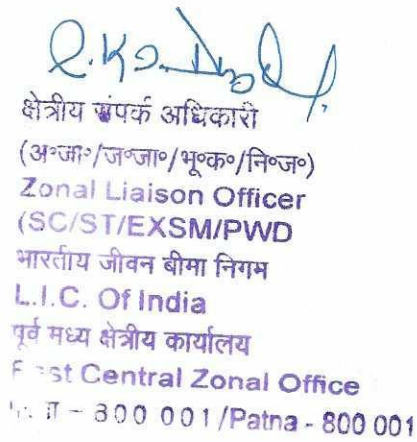 क्षेत्रीय संपर्क अधिकारी
(अ॰जा॰/ज॰जा॰/भू॰क॰/नि॰ज॰)
Zonal Liaison Officer
(SC/ST/EXSM/PWD
भारतीय जीवन बीमा निगम
L.I.C. Of India
पूर्व मध्य क्षेत्रीय कार्यालय
East Central Zonal Office
- 800 001/Patna - 800 001